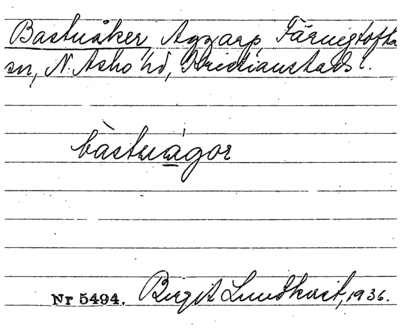 Bastuåker Aggarp Färingtofta
sn, N. Åsbo hd, Kristianstads l.
bàstuágor
Nr 5494. Birgit Lundkvist, 1936.